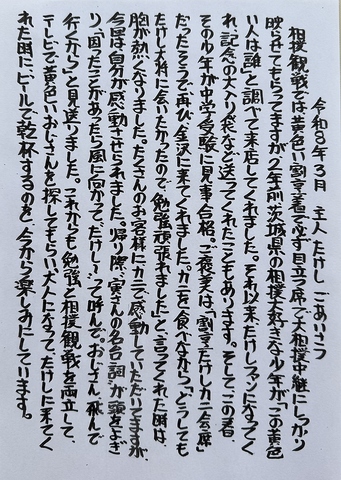 令和8年3月　主人たけし　ごあいさつ
相撲観戦では黄色い割烹着で必ず目立つ席で大相撲中継にしっかり
映らせてもらってますが、2年前茨城県の相撲大好きな少年が「この黄色
い人は誰」と調べて来店してくれました。それ以来、たけしファンになってく
れ、記念の大入り袋など送ってくれたこともあります。そして、この春、
その少年が中学受験に見事合格。ご褒美は、「割烹たけしカニ会席」
だったそうで、再び金沢に来てくれました。カニを食べながら、「どうしても
たけし大将に会いたかったので、勉強頑張れました」と言ってくれた時は、
胸が熱くなりました。たくさんのお客様にカニで感動していただいてますが、
今回は自分が感動させられました。帰り際、寅さんの名台詞が頭をよぎ
り、「困ったことがあったら風に向かって、たけし〜って呼んで。おじさん飛んで
行くから」と見送りました。これからも勉強と相撲観戦を両立して、
テレビで黄色いおじさんを探してもらい、大人になって、たけしに来てく
れた時に、ビールで乾杯するのを、今から楽しみにしています。